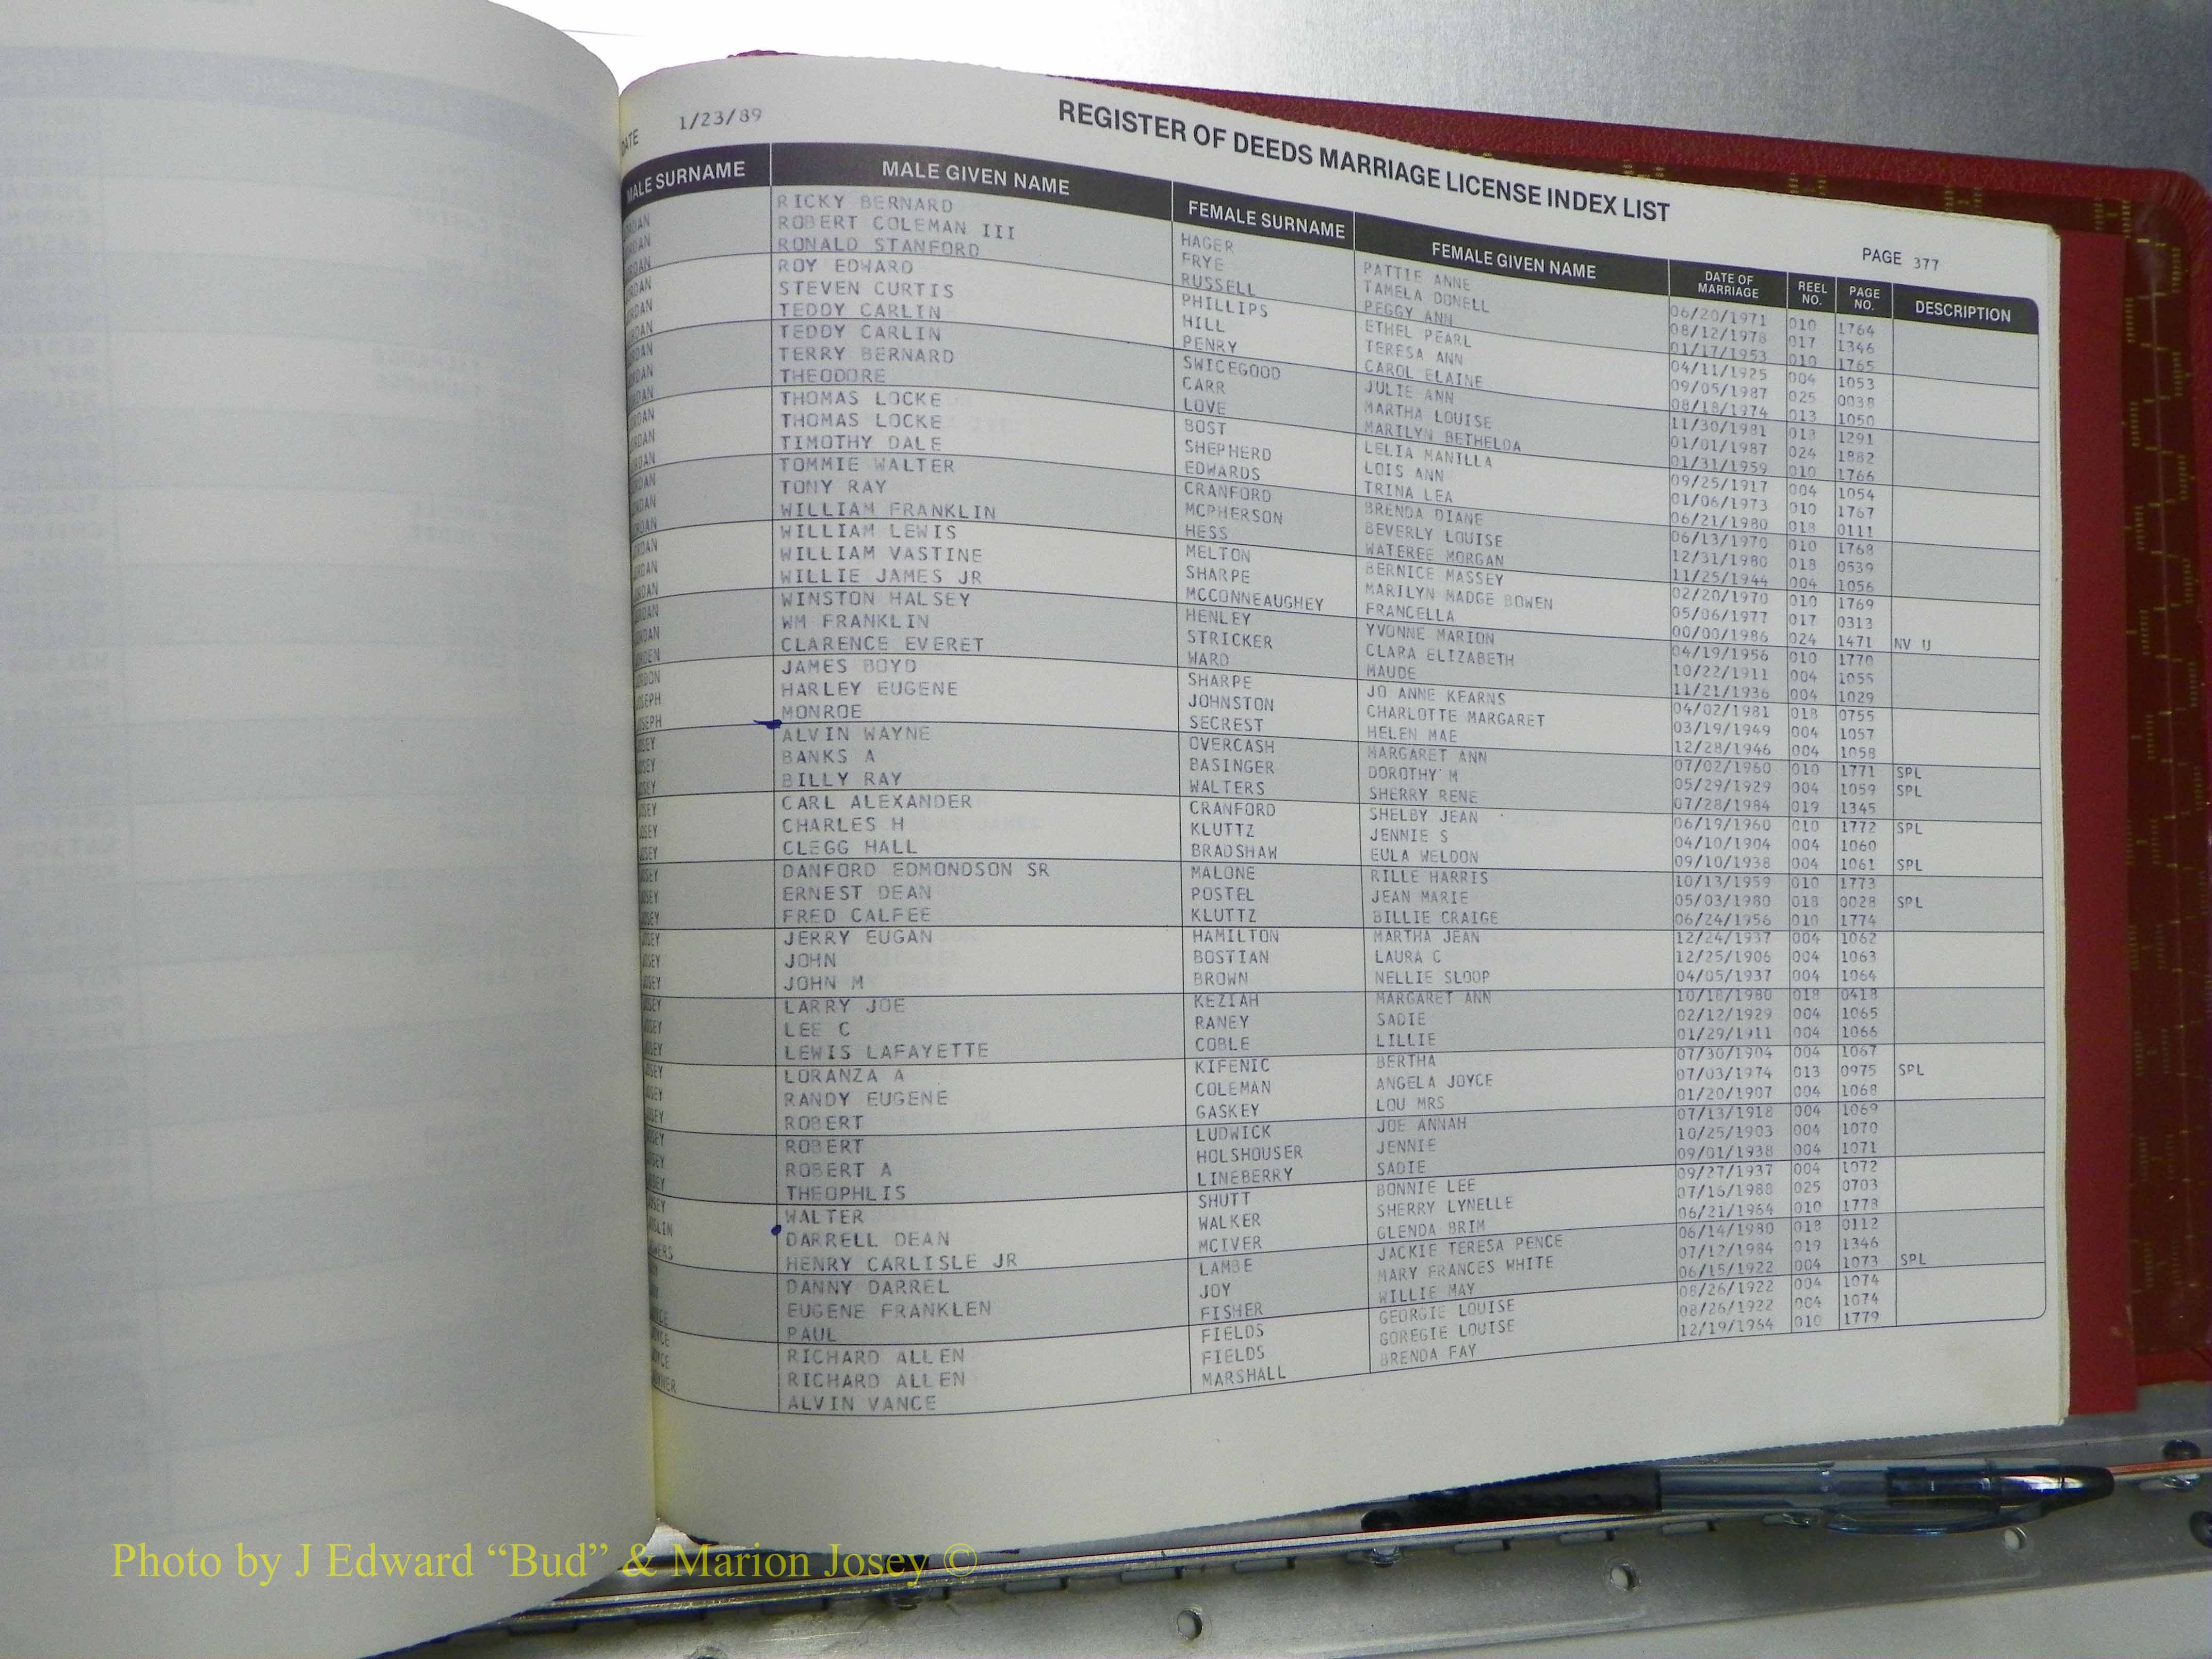 DATE 1/23/89 REGISTER OF DEEDS MARRIAGE LICENSE INDEX LIST PAGE 377
MALE SURNAME MALE GIVEN NAME FEMALE SURNAME FEMALE GIVEN NAME DATE OF MARRIAGE REEL NO. PAGE NO. DESCRIPTION
RICKY BERNARD HAGER PATTIE ANNE 06/20/1971 010 1764
ROBERT COLEMAN III FRYE TAMELA DONELL 08/12/1978 017 1346
RONALD STANFORD RUSSELL PEGGY ANN 01/17/1953 010 1765
ROY EDWARD PHILLIPS ETHEL PEARL 04/11/1925 004 1053
STEVEN CURTIS HILL TERESA ANN 09/05/1987 025 0038
TEDDY CARLIN PENRY CAROL ELAINE 08/18/1974 013 1050
TEDDY CARLIN SWICEGOOD JULIE ANN 11/30/1981 018 1291
TERRY BERNARD CARR MARTHA LOUISE 01/01/1987 024 1882
THEODORE LOVE MARILYN BETHELDA 01/31/1959 010 1766
THOMAS LOCKE BOST LELIA MANILLA 09/25/1917 004 1054
THOMAS LOCKE SHEPHERD LOIS ANN 01/06/1973 010 1767
TIMOTHY DALE EDWARDS TRINA LEA 06/21/1980 018 0111
TOMMIE WALTER CRANFORD BRENDA DIANE 06/13/1970 010 1768
TONY RAY MCPHERSON BEVERLY LOUISE 12/31/1980 018 0539
WILLIAM FRANKLIN HESS WATEREE MORGAN 11/25/1944 004 1056
WILLIAM LEWIS MELTON BERNICE MASSEY 02/20/1970 010 1769
WILLIAM VASTINE SHARPE MARILYN MADGE BOWEN 05/06/1977 017 0313
WILLIE JAMES JR MCCONNEAUGHEY FRANCELLA 00/00/1986 024 1471 NV U
WINSTON HALSEY HENLEY YVONNE MARION 04/19/1956 010 1770
WM FRANKLIN STRICKER CLARA ELIZABETH 10/22/1911 004 1055
CLARENCE EVERET WARD MAUDE 11/21/1936 004 1029
JAMES BOYD SHARPE JO ANNE KEARNS 04/02/1981 018 0755
HARLEY EUGENE JOHNSTON CHARLOTTE MARGARET 03/19/1949 004 1057
MONROE SECREST HELEN MAE 12/28/1946 004 1058
ALVIN WAYNE OVERCASH MARGARET ANN 07/02/1960 010 1771 SPL
BANKS A BASINGER DOROTHY M 05/29/1929 004 1059 SPL
BILLY RAY WALTERS SHERRY RENE 07/28/1984 019 1345
CARL ALEXANDER CRANFORD SHELBY JEAN 06/19/1960 010 1772 SPL
CHARLES H KLUTTZ JENNIE S 04/10/1904 004 1060
CLEGG HALL BRADSHAW EULA WELDON 09/10/1938 004 1061 SPL
DANFORD EDMONDSON SR MALONE RILLE HARRIS 10/13/1959 010 1773
ERNEST DEAN POSTEL JEAN MARIE 05/03/1980 018 0028 SPL
FRED CALFEE KLUTTZ BILLIE CRAIGE 06/24/1956 010 1774
JERRY EUGAN HAMILTON MARTHA JEAN 12/24/1937 004 1062
JOHN BOSTIAN LAURA C 12/25/1906 004 1063
JOHN M BROWN NELLIE SLOOP 04/05/1937 004 1064
LARRY JOE KEZIAH MARGARET ANN 10/18/1980 018 0418
LEE C RANEY SADIE 02/12/1929 004 1065
LEWIS LAFAYETTE COBLE LILLIE 01/29/1911 004 1066
LORANZA A KIFENIC BERTHA 07/30/1904 004 1067
RANDY EUGENE COLEMAN ANGELA JOYCE 07/03/1974 013 0975 SPL
ROBERT GASKEY LOU MRS 01/20/1907 004 1068
ROBERT LUDWICK JOE ANNAH 07/13/1918 004 1069
ROBERT A HOLSHOUSER JENNIE 10/25/1903 004 1070
THEOPHLIS LINEBERRY SADIE 09/01/1938 004 1071
WALTER SHUTT BONNIE LEE 09/27/1937 004 1072
DARRELL DEAN WALKER SHERRY LYNELLE 07/16/1988 025 0703
HENRY CARLISLE JR MCIVER GLENDA BRIM 06/21/1964 010 1778
DANNY DARREL LAMBE JACKIE TERESA PENCE 06/14/1980 018 0112
EUGENE FRANKLEN JOY MARY FRANCES WHITE 07/12/1984 019 1346
PAUL FISHER WILLIE MAY 06/15/1922 004 1073 SPL
RICHARD ALLEN FIELDS GEORGIE LOUISE 08/26/1922 004 1074
RICHARD ALLEN FIELDS GOREGIE LOUISE 08/26/1922 004 1074
ALVIN VANCE MARSHALL BRENDA FAY 12/19/1964 010 1779
Photo by J Edward “Bud” & Marion Josey ©